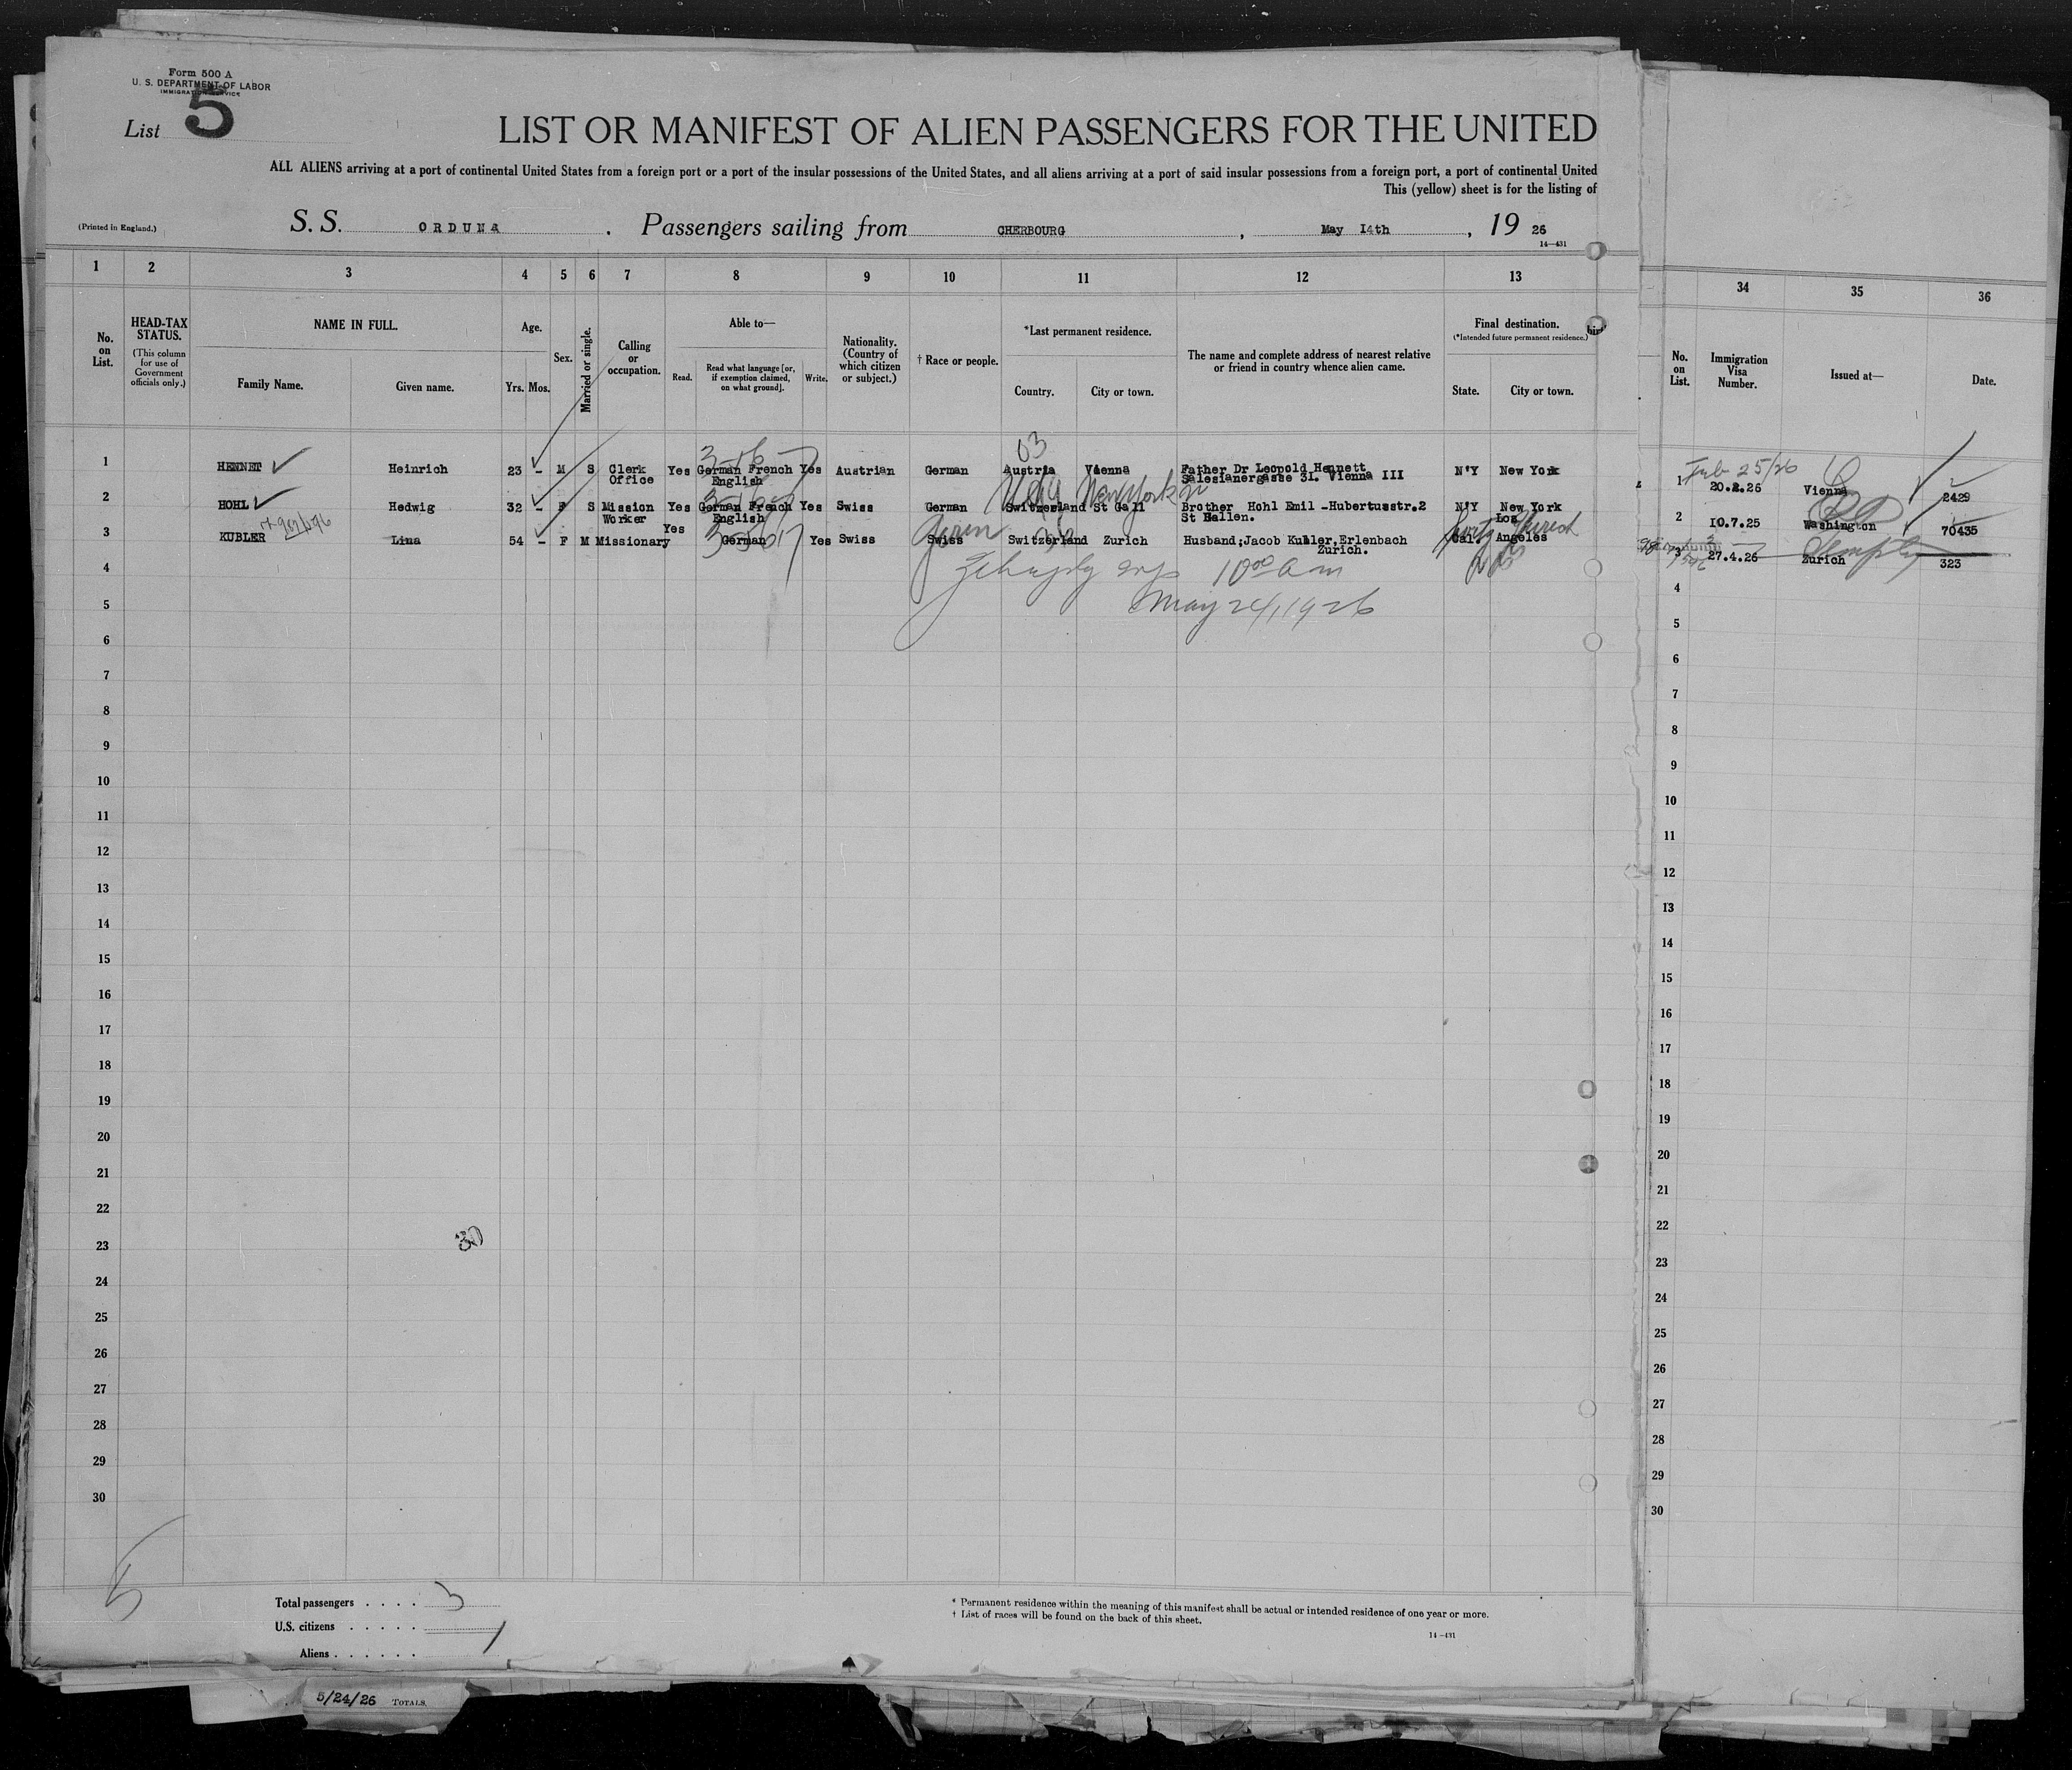 Form 500 A
U. S. DEPARTMENT OF LABOR
IMMIGRATION SERVICE
List 5
LIST OR MANIFEST OF ALIEN PASSENGERS FOR THE UNITED
ALL ALIENS arriving at a port of continental United States from a foreign port or a port of the insular possessions of the United States, and all aliens arriving at a port of said insular possessions from a foreign port, a port of continental United
This (yellow) sheet is for the listing of
(Printed in England.)
S. S. ORDUNA . Passengers sailing from CHERBOURG , May 14th , 19 26
14—431
1 2 3 4 5 6 7 8 9 10 11 12 13 34 35 36
No. on List.
HEAD-TAX STATUS.
(This column for use of Government officials only.)
NAME IN FULL.
Family Name. Given name.
Age.
Yrs. Mos.
Sex.
Married or single.
Calling or occupation.
Able to—
Read. Read what language [or, if exemption claimed, on what ground]. Write.
Nationality. (Country of which citizen or subject.)
† Race or people.
*Last permanent residence.
Country. City or town.
The name and complete address of nearest relative or friend in country whence alien came.
Final destination.
(*Intended future permanent residence.)
State. City or town.
No. on List.
Immigration Visa Number.
Issued at—
Date.
03
Feb 25/26
1 HENNET Heinrich 23 - M S Clerk Yes German French Yes Austrian German Austria Vienna Father Dr Leopold Hennett N'Y New York 1 20.2.26 Vienna 2429
Office English Salesianergasse 31. Vienna III
2 HOHL Hedwig 32 - F S Mission Yes German French Yes Swiss German Switzerland St Gall Brother Hohl Emil -Hubertusstr.2 N'Y New York 2 10.7.25 Washington 70435
Worker English St Gallen. Los
3 KUBLER Lina 54 - F M Missionary Yes German Yes Swiss Swiss Switzerland Zurich Husband;Jacob Kubler,Erlenbach Cal. Angeles 3 27.4.26 Zurich 323
Zurich.
4 10 00 am 4
5 May 24, 1926 5
6 6
7 7
8 8
9 9
10 10
11 11
12 12
13 13
14 14
15 15
16 16
17 17
18 18
19 19
20 20
21 21
22 22
23 30 23
24 24
25 25
26 26
27 27
28 28
29 29
30 30
5
Total passengers . . . . 3
U.S. citizens . . . . .
Aliens . . . . . .
* Permanent residence within the meaning of this manifest shall be actual or intended residence of one year or more.
† List of races will be found on the back of this sheet.
14—431
5/24/26 TOTALS.